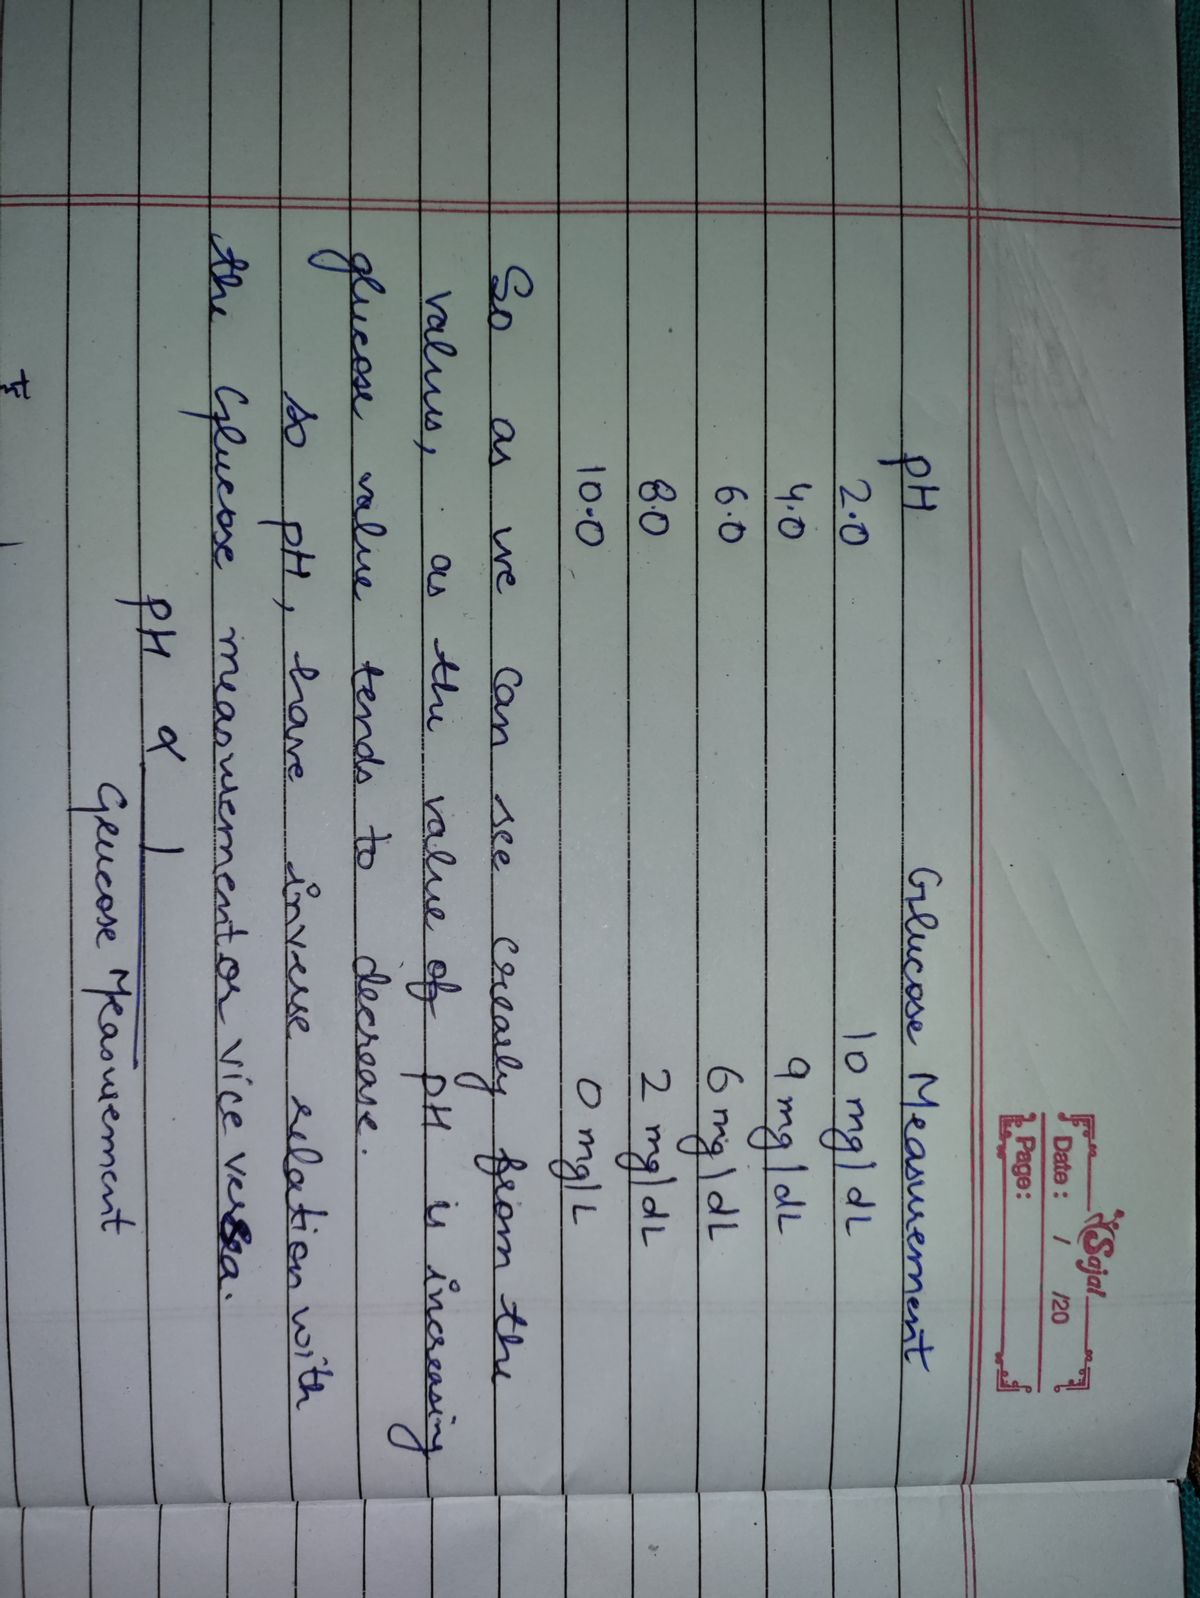 Sajal
Date : / /20
Page :
pH Glucose Measurement
2.0 10 mg/dL
4.0 9 mg/dL
6.0 6 mg/dL
8.0 2 mg/dL
10.0 0 mg/L
So as we can see clearly from the
values, as the value of pH is increasing
glucose value tends to decrease.
so pH, have inverse relation with
the Glucose measurement or vice versa.
pH α 1
Glucose Measurement